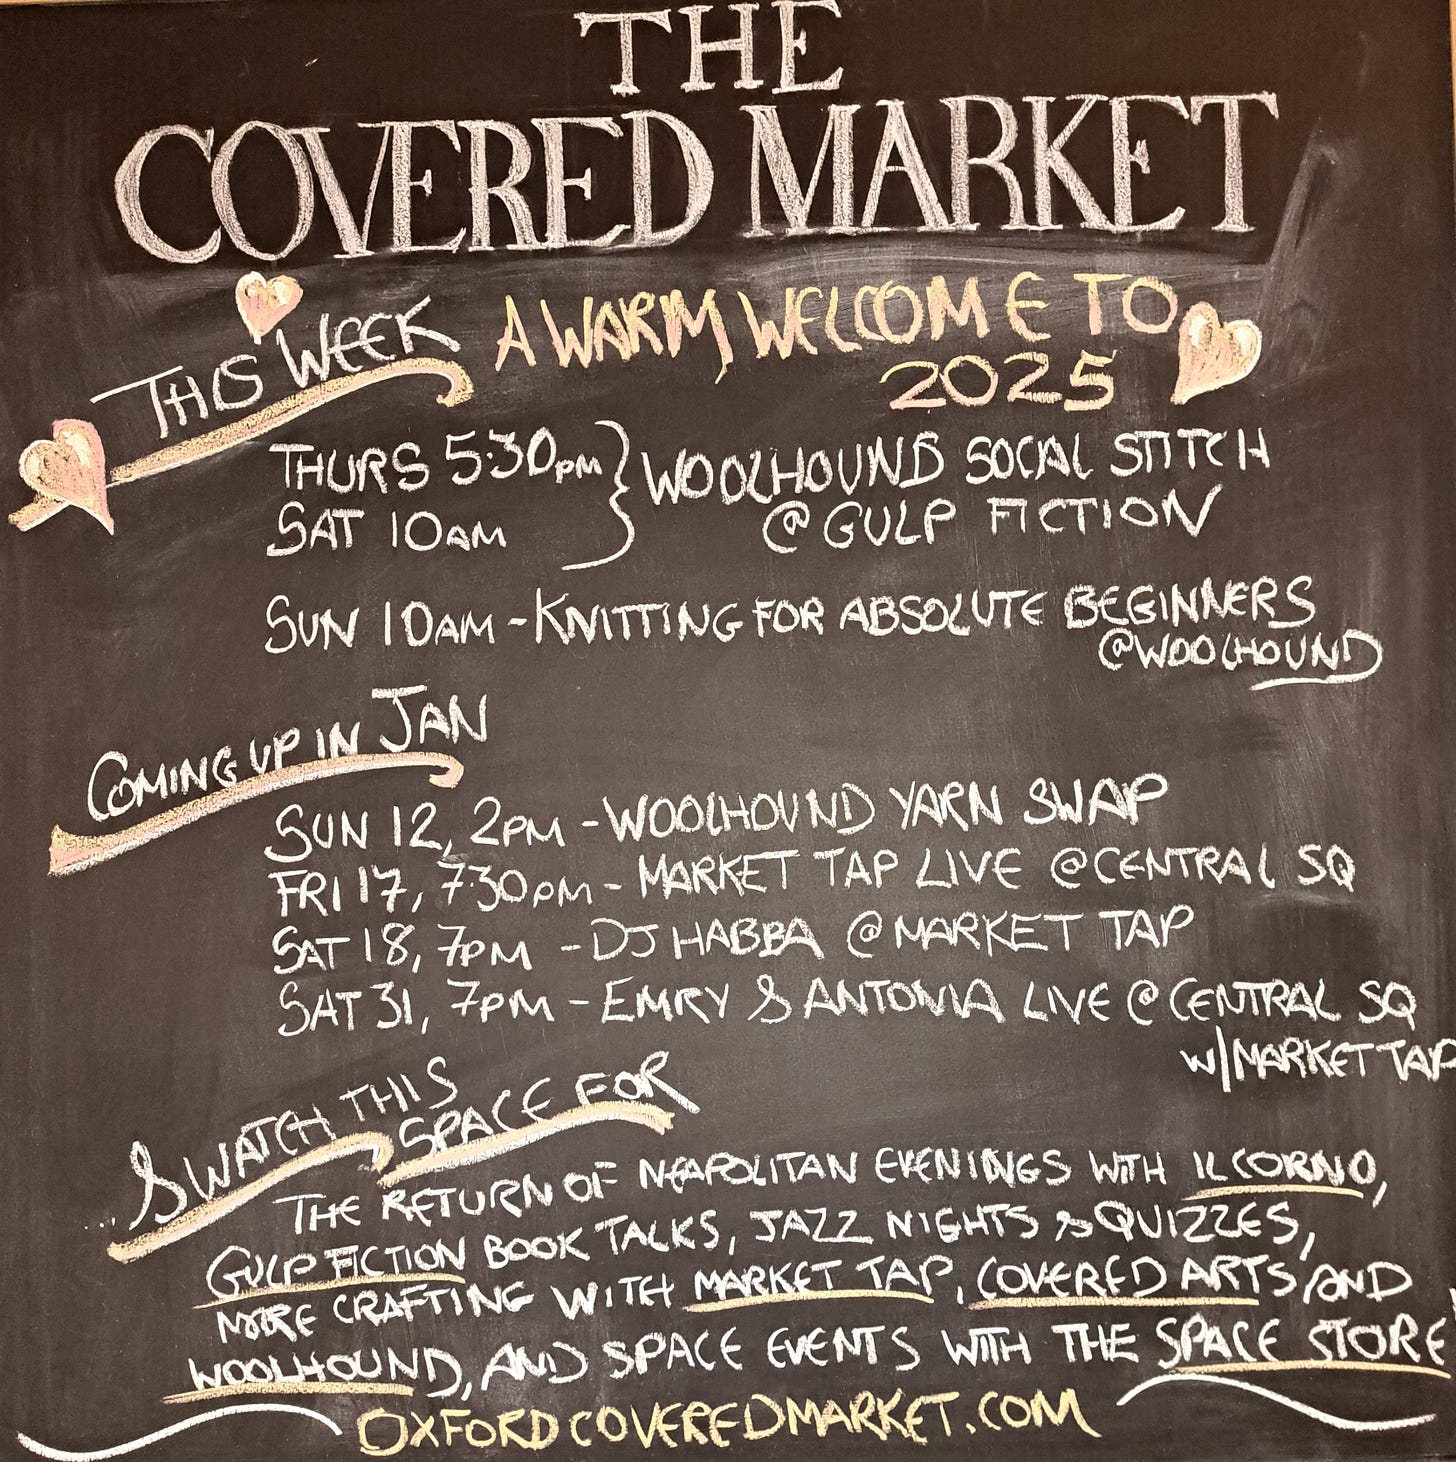 THE
COVERED MARKET
THIS WEEK
A WARM WELCOME TO
2025
THURS 5.30PM } WOOLHOUND SOCIAL STITCH
SAT 10AM @ GULP FICTION
SUN 10AM - KNITTING FOR ABSOLUTE BEGINNERS
@WOOLHOUND
COMING UP IN JAN
SUN 12, 2PM - WOOLHOUND YARN SWAP
FRI 17, 7.30PM - MARKET TAP LIVE @CENTRAL SQ
SAT 18, 7PM - DJ HABBA @ MARKET TAP
SAT 31, 7PM - EMRY & ANTONIA LIVE @ CENTRAL SQ
W/MARKET TAP
...& WATCH THIS
SPACE FOR
THE RETURN OF NEAPOLITAN EVENINGS WITH IL CORNO,
GULP FICTION BOOK TALKS, JAZZ NIGHTS & QUIZZES,
MORE CRAFTING WITH MARKET TAP, COVERED ARTS, AND
WOOLHOUND, AND SPACE EVENTS WITH THE SPACE STORE
OXFORDCOVEREDMARKET.COM